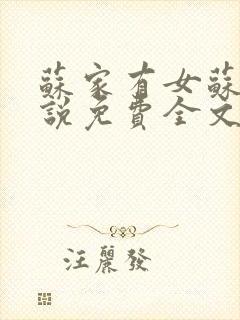 蘇家有女蘇
說免費全文
汪麗發